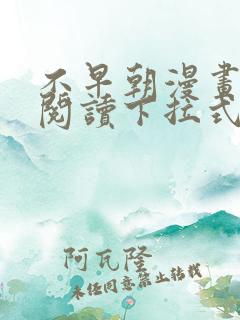 不早朝漫畫
閱讀下拉式
阿瓦隆
未經同意禁止轉載